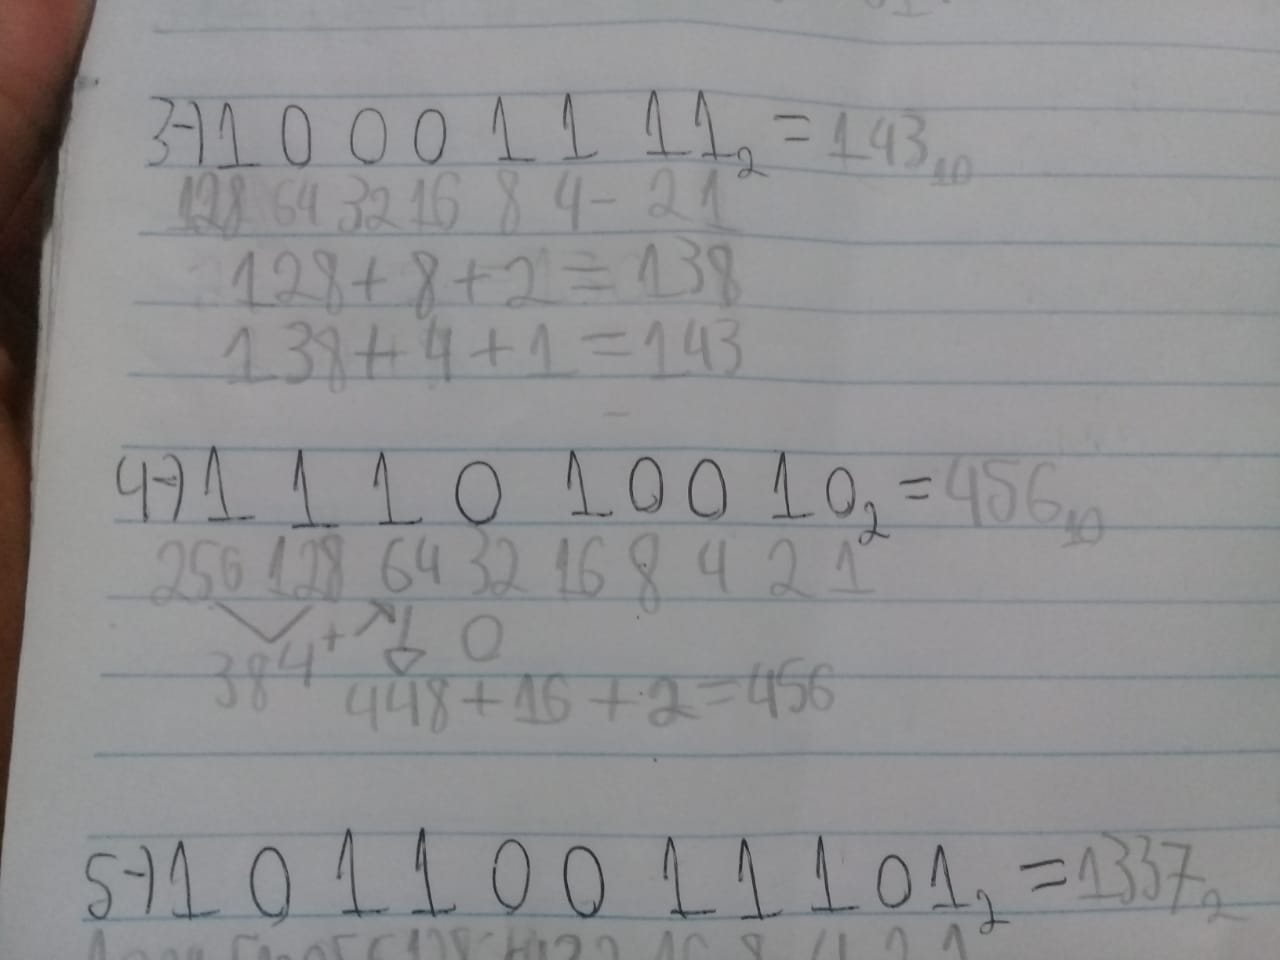 3-) 1 0 0 0 1 1 1 1₂ = 143₁₀
128 64 32 16 8 4 - 2 1
128 + 8 + 2 = 138
138 + 4 + 1 = 143
4-) 1 1 1 0 1 0 0 1 0₂ = 456₁₀
256 128 64 32 16 8 4 2 1
384 + 0
448 + 16 + 2 = 456
5-) 1 0 1 1 0 0 1 1 1 0 1₂ = 1337₂
128 16 8 4 2 1